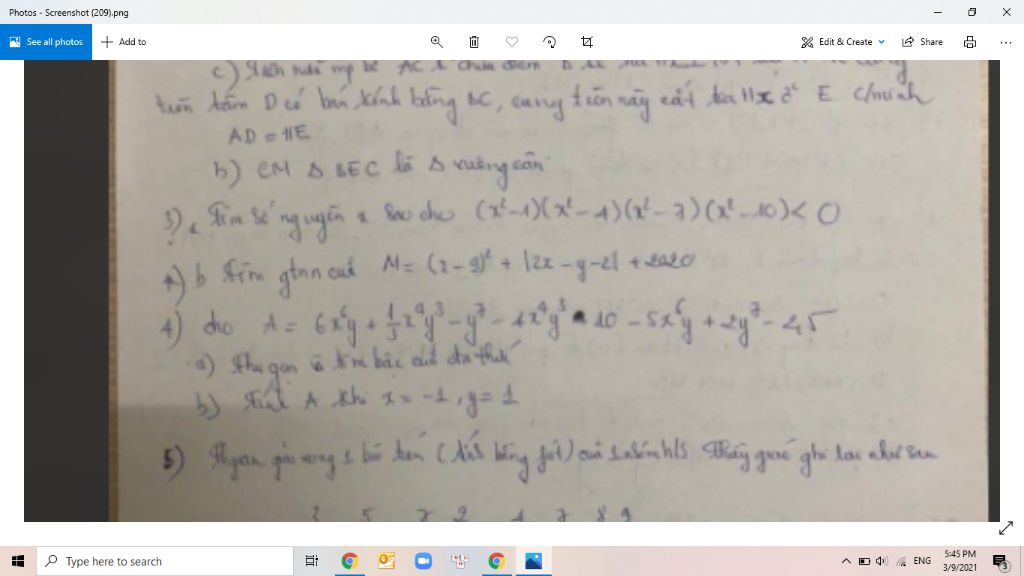 Photos - Screenshot (209).png
See all photos
Add to
Edit & Create
Share
tâm D có bán kính bằng BC, cung tròn này cắt tia Hx ở E. C/minh
AD = HE
b) CM Δ BEC là Δ vuông cân
3) a Tìm số nguyên x sao cho (x²-1)(x²-4)(x²-7)(x²-10) < 0
b Tìm gtnn của M = (x-9)² + |2x - y - 2| + 2020
4) cho A = 6x⁶y + 1/3x⁴y³ - y⁷ - 4x⁴y³ 10 - 5x⁶y + 2y⁷ - 2,5
a) Thu gọn và tìm bậc của đa thức
b) Tính A khi x = -1, y = 1
5) giải xong 1 bài toán (tính bằng phút) của 1 nhóm h/s Thầy giáo ghi lại như sau
Type here to search
ENG
5:45 PM
3/9/2021
3